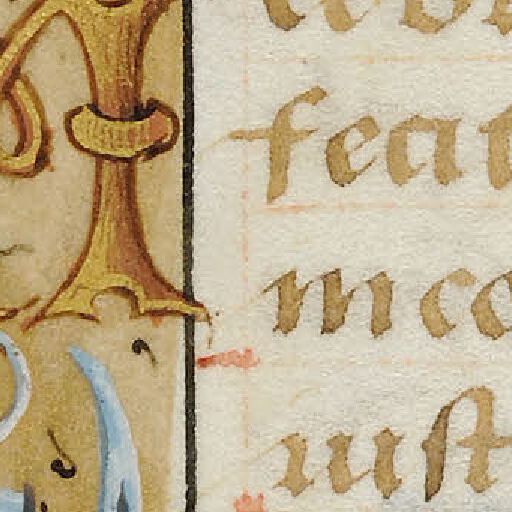 feat
mco
iust